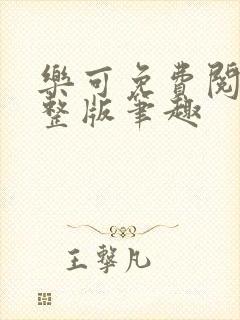 樂可免費閱
整版筆趣
王擊凡